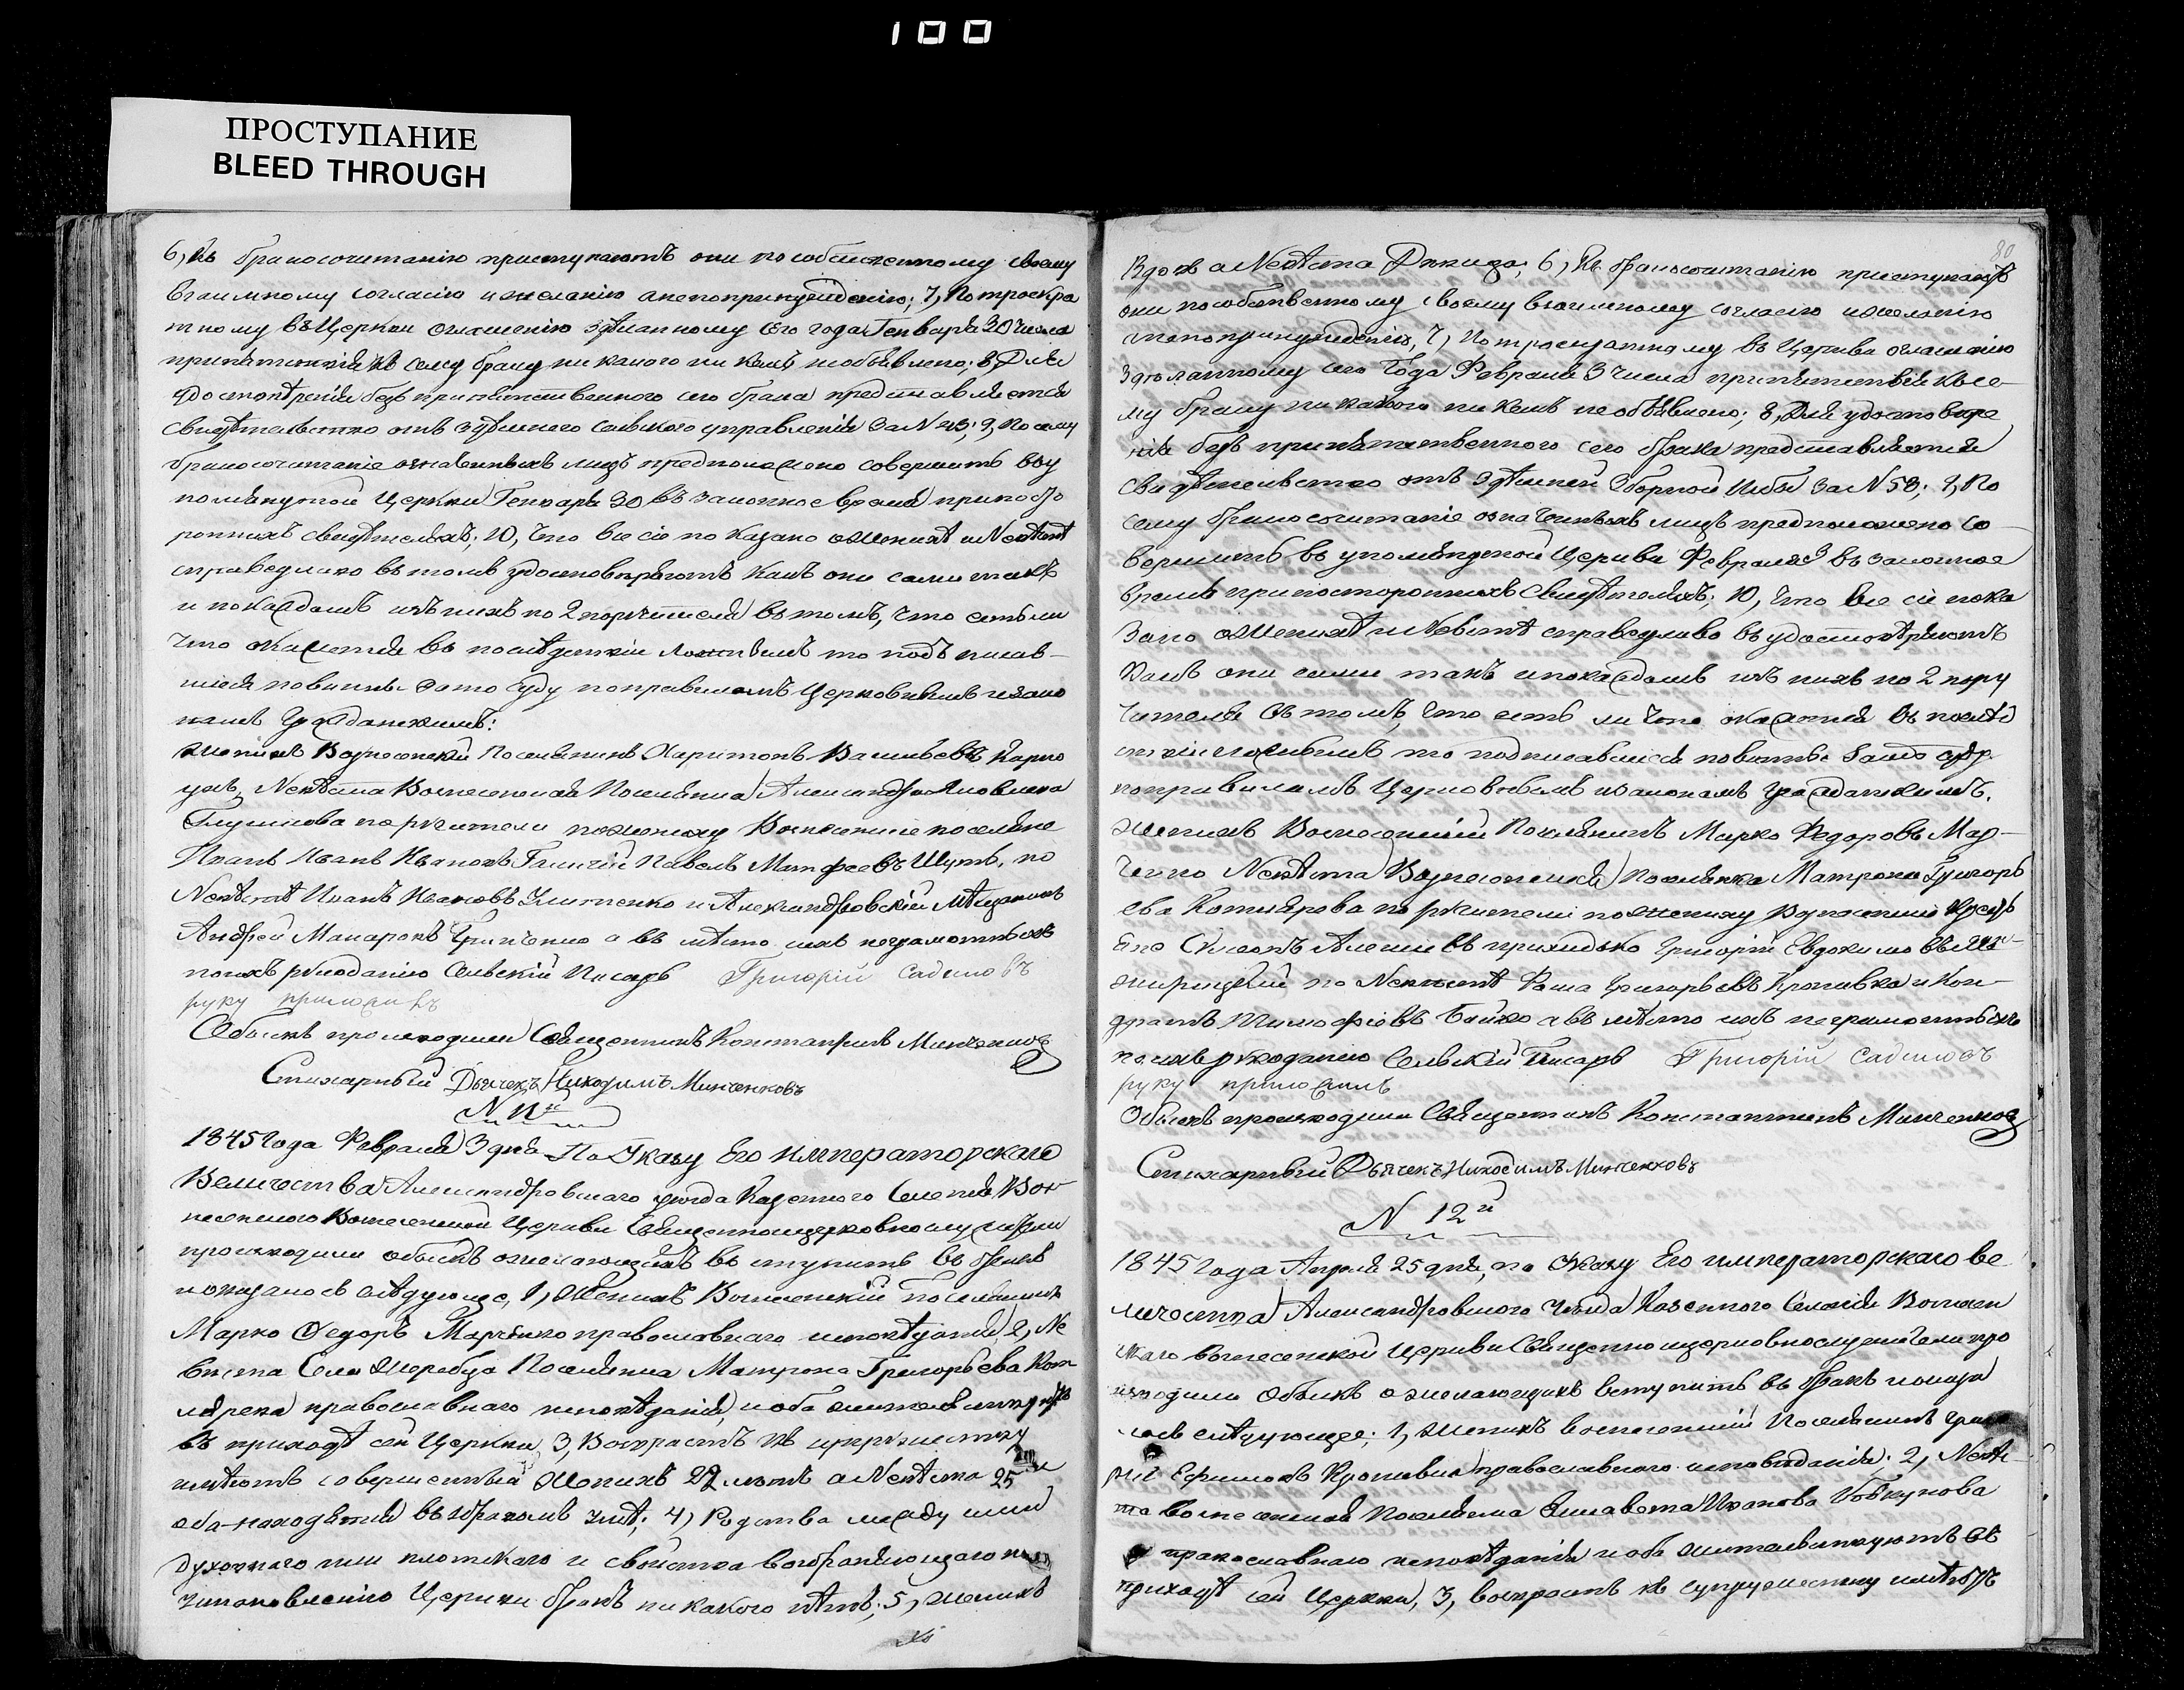 100
ПРОСТУПАНИЕ
BLEED THROUGH
6, Къ бракосочетанію приступаютъ они по собственному своему
взаимному согласію и желанію а не по принужденію; 7, По троекра
тному въ Церкви оглашенію зделанному сего года Генваря 20 числа
препятствія къ сему браку никакого ни кемъ не объявлено; 8, Для
удостовѣренія безпрепятственного сего брака представляется
свидѣтельство отъ здѣшнего сельского управленія за N 43; 9, По сему
бракосочетаніе означенныхъ лицъ предположено совершить въ у
помянутой Церкви Генваря 30 въ законное время при посто
ронныхъ свидѣтеляхъ; 10, Что все сіе показано о женихѣ и Невѣстѣ
справедливо въ томъ удостовѣряютъ какъ они сами такъ
и по каждомъ изъ нихъ по 2 поручителя въ томъ, что естьли
что окажется въ послѣдствіи ложнымъ то подъ писав-
шіеся повинны за то суду по правиламъ Церковнымъ и зако
намъ Гражданскимъ:
женихъ Вознесенскій Поселянинъ Харитонъ Васильевъ
Невѣста Вознесенская Поселянка Александра Яковлева
Глушкова поручители по жениху Вознесенскіе поселяне
Иванъ Ивановъ Павелъ Матфеевъ Шуть, по
Невѣстѣ Иванъ Ивановъ и Александровскій мѣщанинъ
Андрей Макаровъ а въ мѣсто ихъ неграмотныхъ
по ихъ рукоданію Сельскій Писарь Григорій Садиловъ
руку приложилъ
Обыскъ производили Священникъ Константинъ Минченковъ
Стихарный Дьячекъ Никодимъ Минченковъ
N 11й
1845 Года Февраля 3 дня По Указу Его императорскаго
Величества Александровского уезда Казенного Селенія Воз
несенского Вознесенской Церкви Священноцерковнослужители
производили обыскъ о желающихъ вступить въ бракъ
и оказалось слѣдующее, 1, Женихъ Вознесенскій Поселянинъ
Марко Федоръ Марченко православнаго исповѣданія, 2, Не
вѣста Села Жеребца Поселянка Матрона Григорьева Кот
лярева православнаго исповѣданія, и оба жительствуютъ
въ приходѣ сей Церкви, 3, Возрастъ къ супружеству
имѣютъ совершенный Женихъ 22 летъ а Невѣста 25
оба находятся въ здравомъ умѣ; 4, Родства между ими
духовнаго или плотскаго и свойства возбраняющаго по
установленію Церкви бракъ никакого нѣтъ; 5, женихъ
80
Вдовъ а Невѣста Девица; 6, Къ бракосочетанію приступаютъ
они по собственному своему взаимному согласію и желанію
а не по принужденію, 7, По троекратному въ Церкви оглашенію
зделанному сего Года Февраля 3 числа препятствія къ се-
му браку никакого ни кемъ не объявлено; 8, Для удостовере
нія безпрепятственного сего брака представляется
свидѣтельство отъ здѣшней Зборной Избы за N 53; 9, По
сему бракосочетаніе означенныхъ лицъ предположено со
вершить въ упомянутой Церкви Февраля 3 въ законное
время при постороннихъ свидѣтеляхъ; 10, Что все сіе пока
зано о женихѣ и Невѣстѣ справедливо въ удостовѣряютъ
какъ они сами такъ и по каждомъ изъ нихъ по 2 пору
чителя въ томъ, Что есть ли что окажется въ послѣд
ствіи ложнымъ то подписавшіеся повинны за то суду
по правиламъ Церковнымъ и законамъ Гражданскимъ.
женихъ Вознесенскій Поселянинъ Марко Федоровъ Мар-
ченко Невѣста Вознесенская Поселянка Матрона Григорь
ева Котлярева поручители по жениху Вознесенские
Алексеевъ Приходько Григорій Евдокимовъ
по Невѣстѣ Фома Григорьевъ Кропивка и Кон-
дратъ Тимофеевъ Бойко а въ мѣсто ихъ неграмотныхъ
по ихъ рукоданію Сельскій Писарь Григорій Садиловъ
руку приложилъ
Обыскъ производили Священникъ Константинъ Минченковъ
Стихарный Дьячекъ Никодимъ Минченковъ
N 12й
1845 Года Апреля 25 дня, по Указу Его императорскаго ве
личества Александровского Уезда Казенного Селенія Вознесен
скаго вознесенской Церкви Священноцерковнослужители про
изводили Обыскъ о желающихъ вступить въ бракъ и оказа
лось слѣдующее; 1, женихъ вознесенскій Поселянинъ
Ефимовъ Кропивка православного исповеданія; 2, Невѣ-
ста вознесенская Поселянка Елисавета Иванова
православнаго исповѣданія и оба жительствуютъ въ
приходѣ сей Церкви, 3, возрастъ къ супружеству имѣютъ